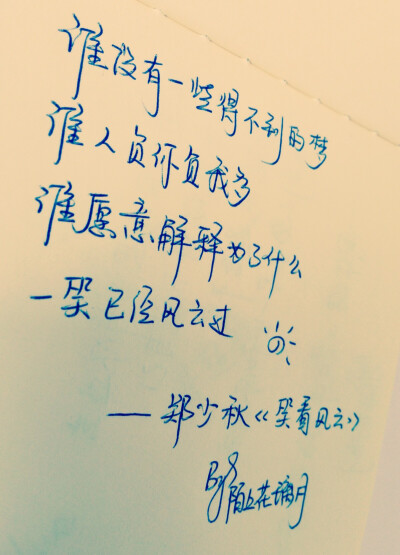 谁没有一些得不到的梦
谁人负你负我多
谁愿意解释为了什么
一笑已经风云过
——郑少秋《笑看风云》
By 陌上花璃月